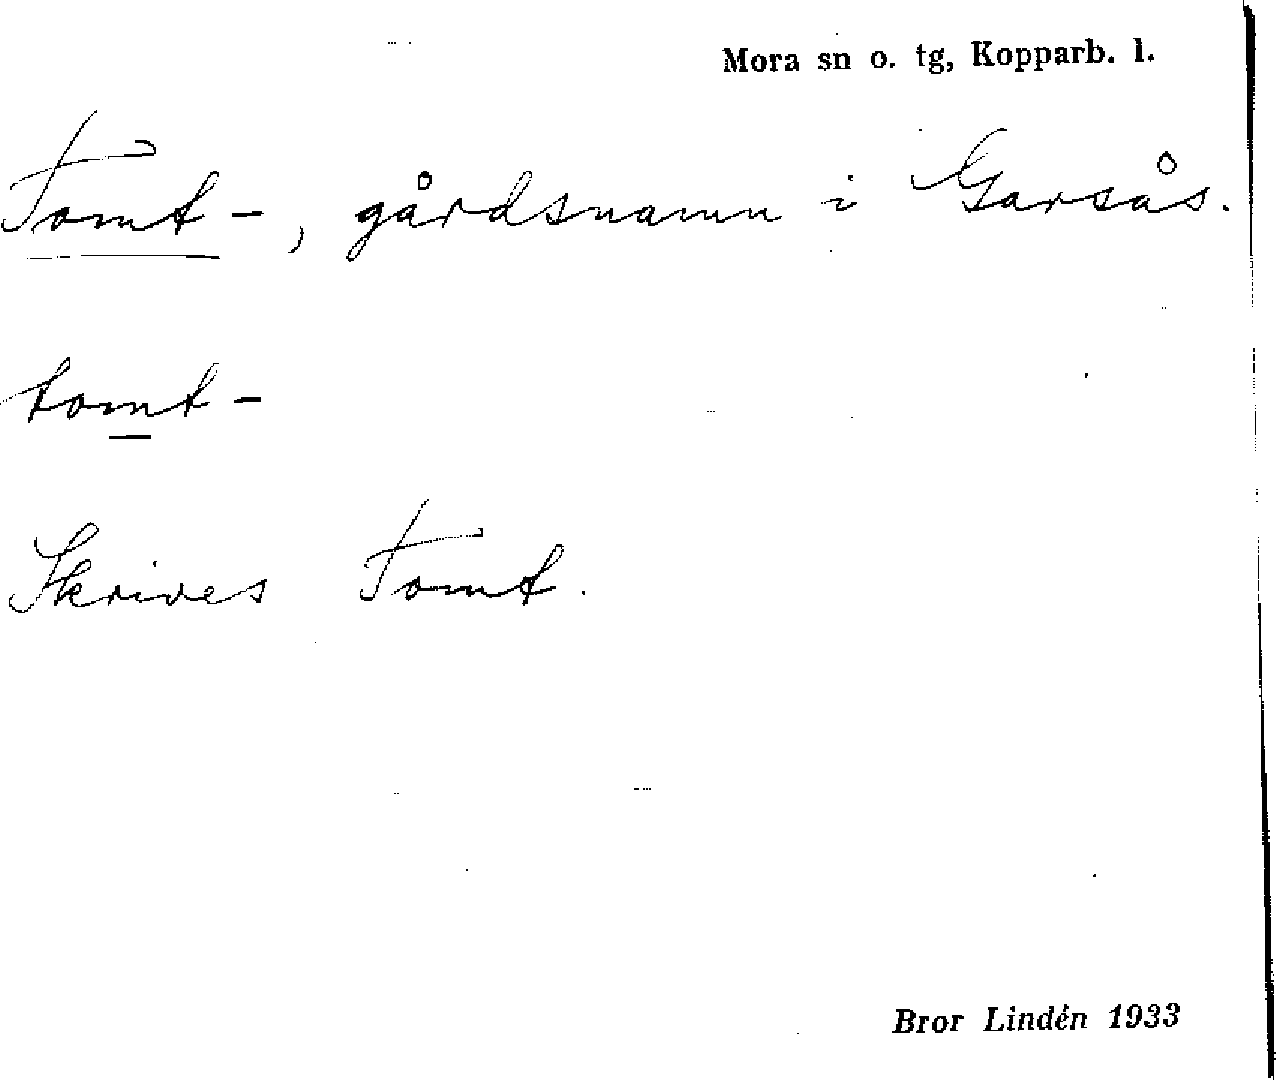 Mora sn o. tg, Kopparb. l.
Tomt-, gårdsnamn i Garsås.
tomt-
Skrives Tomt.
Bror Lindén 1933